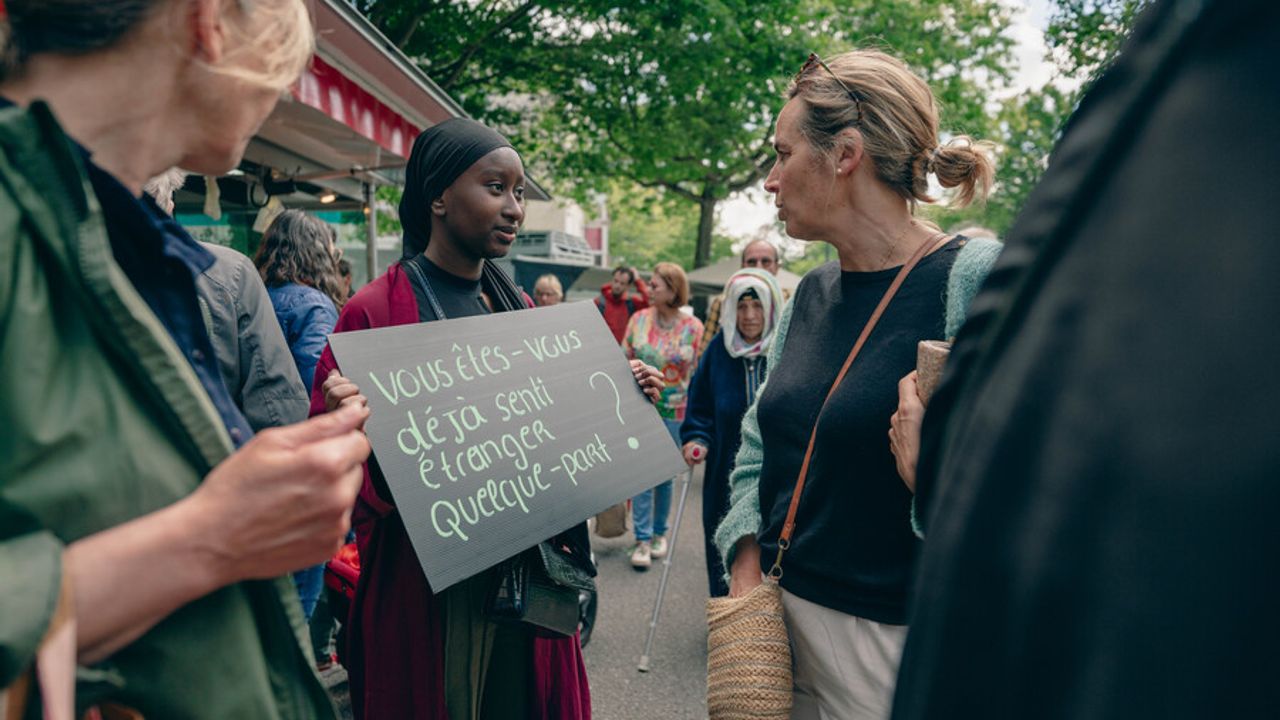 Vous êtes-vous
déjà senti
étranger
Quelque-part ?